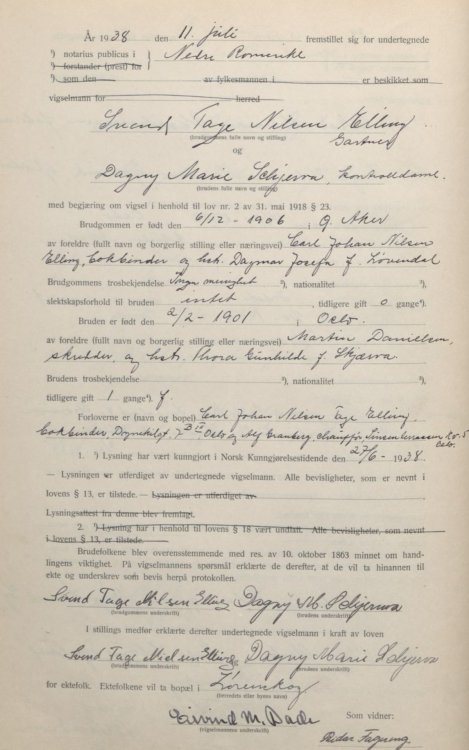 År 1938 den 11. juli fremstillet sig for undertegnede
¹) notarius publicus i Nedre Romerike
¹) forstander (prest) for
¹) som den av fylkesmannen i er beskikket som
vigselmann for herred
Svend Tage Nilsen Elling
Gartner
(brudgommens fulle navn og stilling)
og
Dagny Marie Schjerva, kontrolldame
(brudens fulle navn og stilling)
med begjæring om vigsel i henhold til lov nr. 2 av 31. mai 1918 § 23.
Brudgommen er født den 6/12 - 1906 i Ø. Aker
av foreldre (fullt navn og borgerlig stilling eller næringsvei) Carl Johan Nilsen
Elling, bokbinder og hst. Dagmar Josefa f. Løvendal
Brudgommens trosbekjendelse Ingen menighet ²), nationalitet ³),
slektskapsforhold til bruden intet, tidligere gift 0 gange⁴).
Bruden er født den 2/2 - 1901 i Oslo
av foreldre (fullt navn og borgerlig stilling eller næringsvei) Martin Danielsen,
skredder, og hst. Thora Gunhilde f. Skjerva.
Brudens trosbekjendelse ²), nationalitet ³),
tidligere gift 1 gange⁴) f.
Forloverne er (navn og bopel) Carl Johan Nilsen Elling,
bokbinder, Oslo og Alf chauffør,
Oslo.
1. ¹) Lysning har vært kunngjort i Norsk Kunngjørelsestidende 27/6 - 1938.
— Lysningen er utferdiget av undertegnede vigselmann. Alle bevisligheter, som er nevnt i
lovens § 13, er tilstede. — Lysningen er utferdiget av
Lysningsattest fra denne blev fremlagt.
2. ¹) Lysning har i henhold til lovens § 18 vært undlatt. Alle bevisligheter, som nevnt
i lovens § 13, er tilstede.
Brudefolkene blev overensstemmende med res. av 10. oktober 1863 minnet om hand-
lingens viktighet. På vigselmannens spørsmål erklærte de derefter, at de vil ta hinannen til
ekte og underskrev som bevis herpå protokollen.
Svend Tage Nilsen Elling Dagny M. Schjerva
(brudgommens underskrift) (brudens underskrift)
I stillings medfør erklærte derefter undertegnede vigselmann i kraft av loven
Svend Tage Nilsen Elling og Dagny Marie Schjerva
(brudgommens underskrift) (brudens underskrift)
for ektefolk. Ektefolkene vil ta bopæl i Lørenskog
(herredets eller byens navn)
Eivind M. Dade Som vidner:
(vigselmannens underskrift) Reidar Fagereng